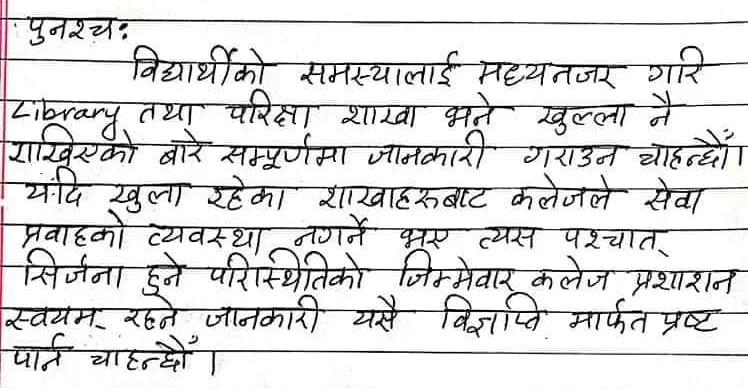 पुनश्चः
विद्यार्थीको समस्यालाई मध्यनजर गरि
Library तथा परिक्षा शाखा भने खुल्ला नै
राखिएको बारे सम्पूर्णमा जानकारी गराउन चाहन्छौं।
यदि खुला रहेका शाखाहरुबाट कलेजले सेवा
प्रवाहको व्यवस्था नगर्ने भए त्यस पश्चात्
सिर्जना हुने परिस्थितिको जिम्मेवार कलेज प्रशाशन
स्वयम् रहने जानकारी यसै विज्ञप्ति मार्फत प्रष्ट
पार्न चाहन्छौं।